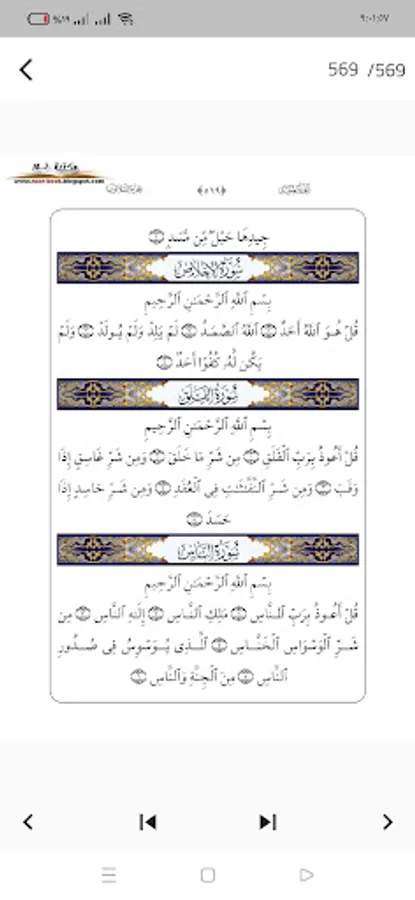 %١٩ ٩:٠١:٥٧
569 /569
﴿٥٦٩﴾
جِيدِهَا حَبْلٌ مِّن مَّسَدٍ
سُورَةُ الإِخْلَاصِ
بِسْمِ ٱللَّهِ ٱلرَّحْمَٰنِ ٱلرَّحِيمِ
قُلْ هُوَ ٱللَّهُ أَحَدٌ ۝ ٱللَّهُ ٱلصَّمَدُ ۝ لَمْ يَلِدْ وَلَمْ يُولَدْ ۝ وَلَمْ
يَكُن لَّهُ كُفُوًا أَحَدٌ ۝
سُورَةُ الفَلَقِ
بِسْمِ ٱللَّهِ ٱلرَّحْمَٰنِ ٱلرَّحِيمِ
قُلْ أَعُوذُ بِرَبِّ ٱلْفَلَقِ ۝ مِن شَرِّ مَا خَلَقَ ۝ وَمِن شَرِّ غَاسِقٍ إِذَا
وَقَبَ ۝ وَمِن شَرِّ ٱلنَّفَّٰثَٰتِ فِى ٱلْعُقَدِ ۝ وَمِن شَرِّ حَاسِدٍ إِذَا
حَسَدَ ۝
سُورَةُ النَّاسِ
بِسْمِ ٱللَّهِ ٱلرَّحْمَٰنِ ٱلرَّحِيمِ
قُلْ أَعُوذُ بِرَبِّ ٱلنَّاسِ ۝ مَلِكِ ٱلنَّاسِ ۝ إِلَٰهِ ٱلنَّاسِ ۝ مِن
شَرِّ ٱلْوَسْوَاسِ ٱلْخَنَّاسِ ۝ ٱلَّذِى يُوَسْوِسُ فِى صُدُورِ
ٱلنَّاسِ ۝ مِنَ ٱلْجِنَّةِ وَٱلنَّاسِ ۝